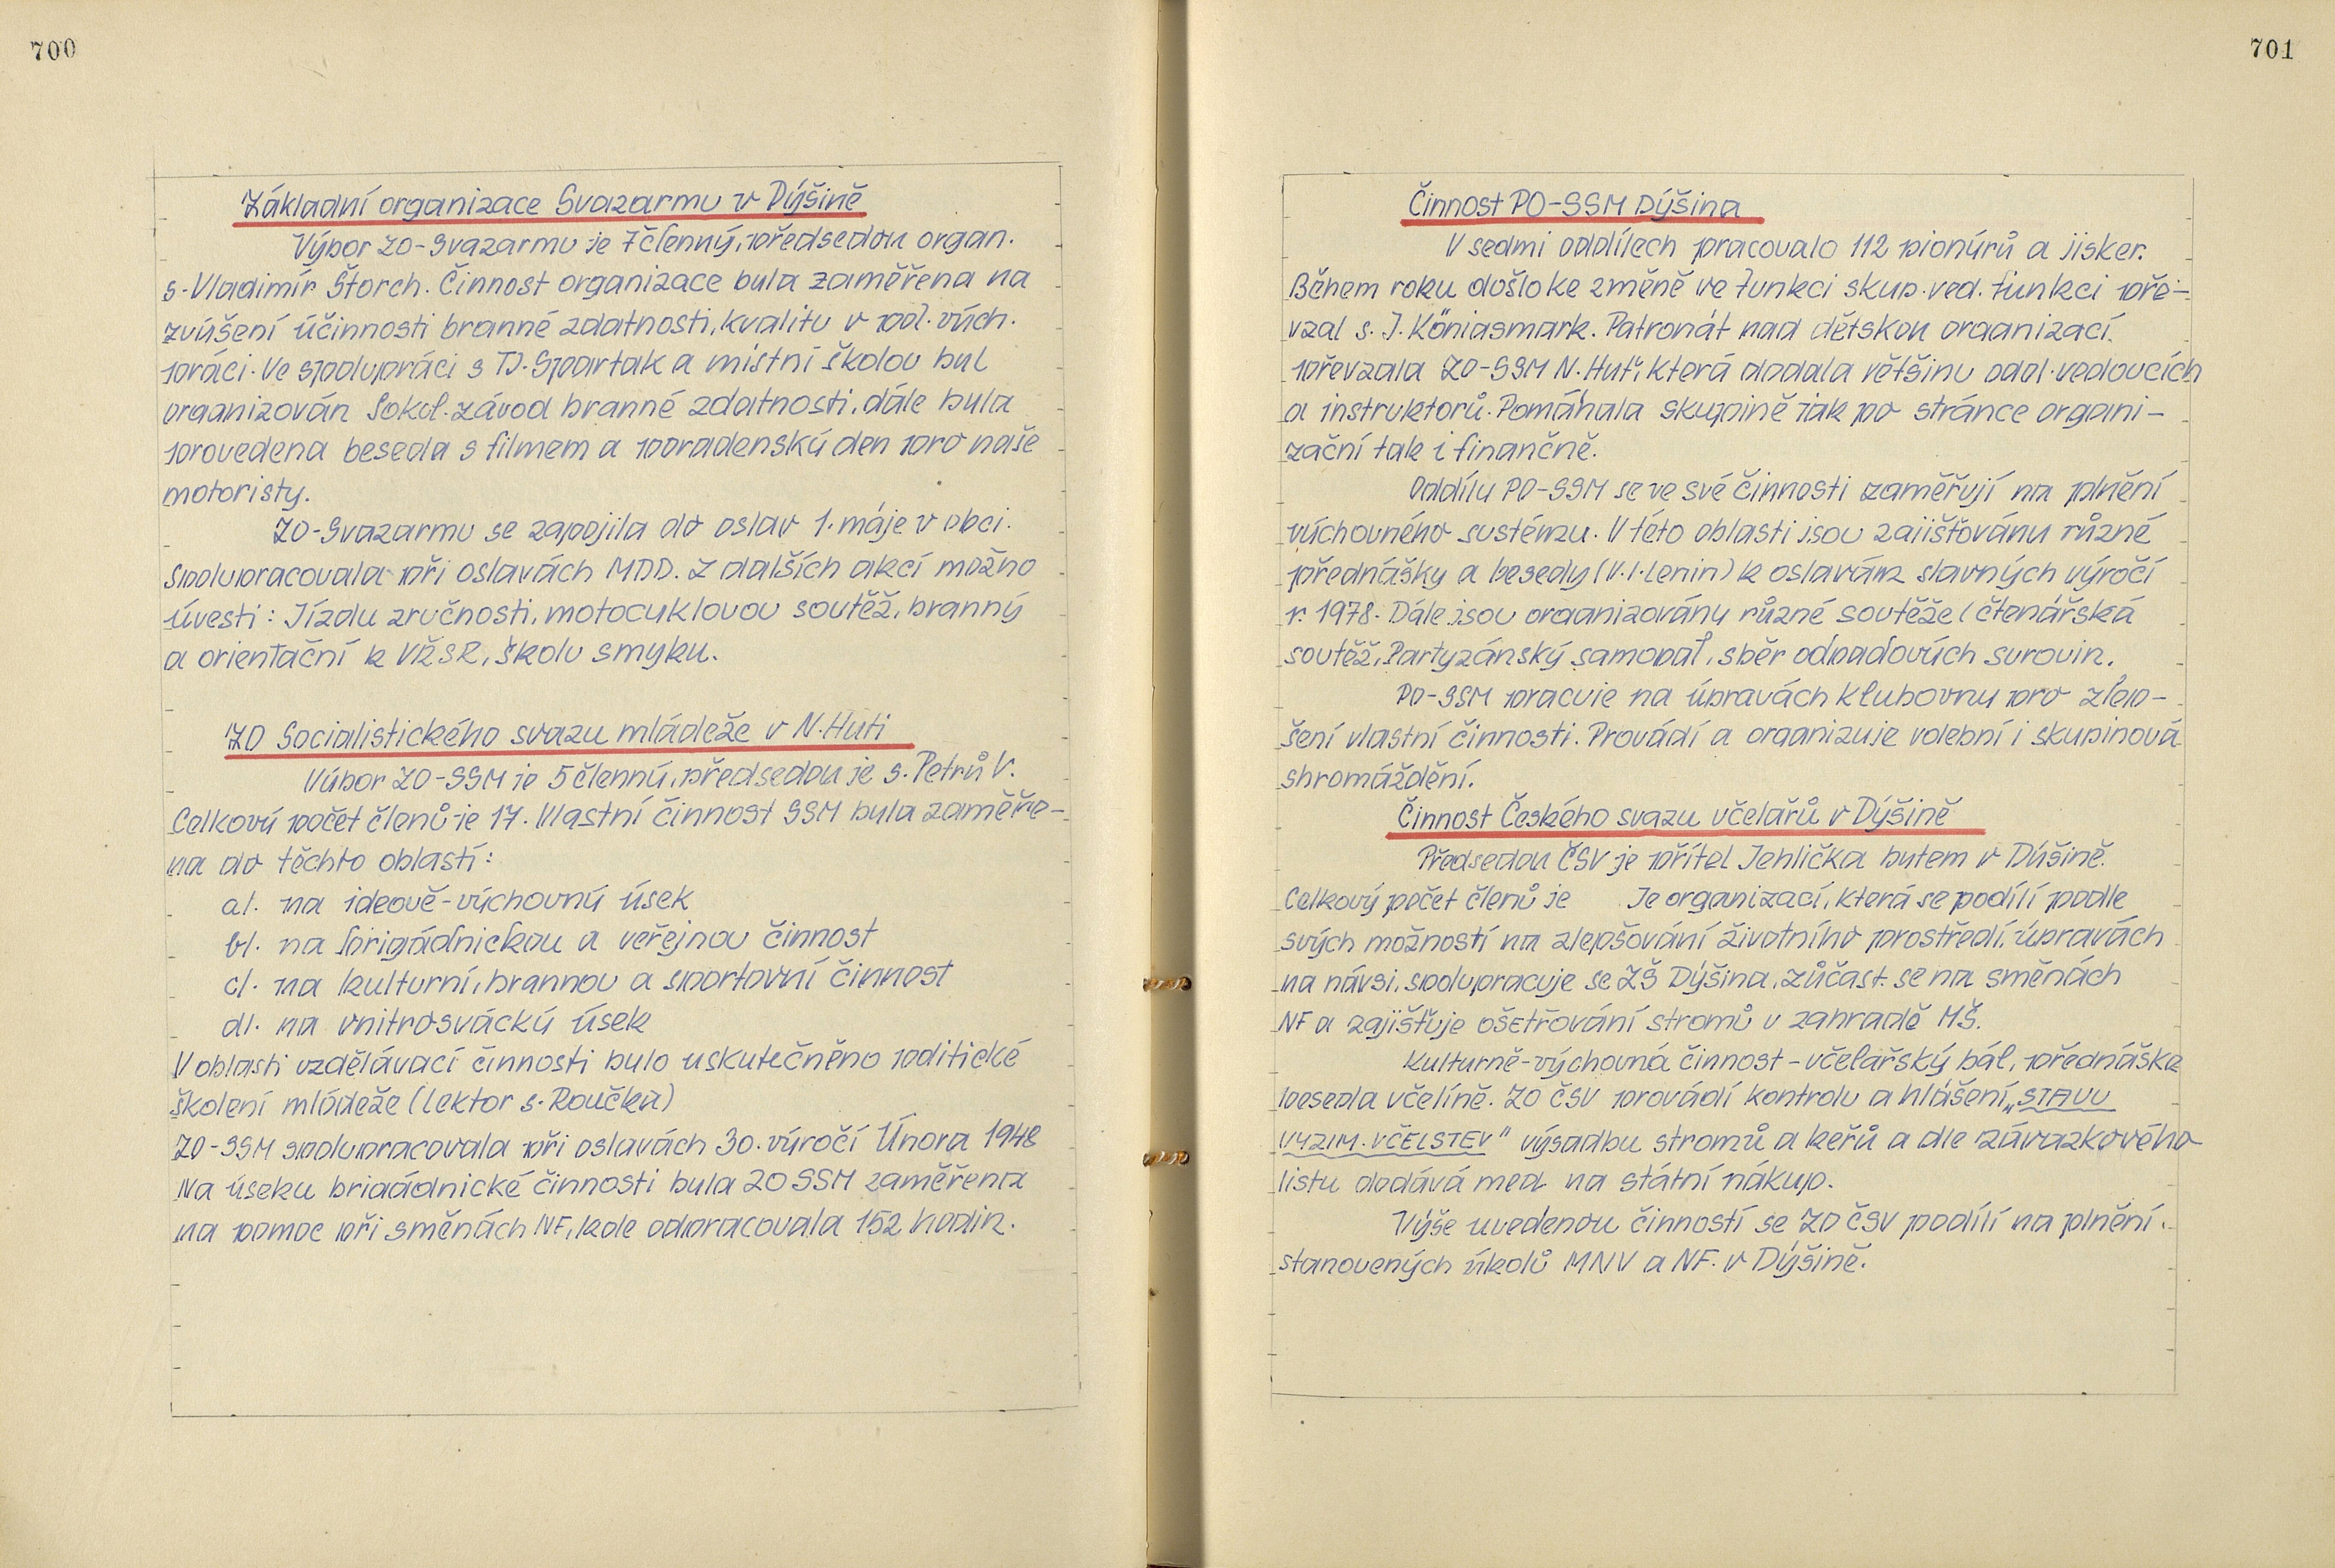 700
Základní organizace Svazarmu v Dýšině
Výbor ZO-Svazarmu je 7členný, předsedou organ.
s. Vladimír Štorch. Činnost organizace byla zaměřena na
zvýšení účinnosti branné zdatnosti, kvality v pol. vých.
práci. Ve spolupráci s TJ. Spartak a místní školou byl
organizován Sokol. závod branné zdatnosti, dále byla
provedena beseda s filmem a poradenský den pro naše
motoristy.
ZO-Svazarmu se zapojila do oslav 1. máje v obci.
Spolupracovala při oslavách MDD. Z dalších akcí možno
úvesti: Jízdu zručnosti, motocyklovou soutěž, branný
a orientační k VŘSR, školu smyku.
ZO Socialistického svazu mládeže v N. Huti
Výbor ZO-SSM je 5členný, předsedou je s. Petrů V.
Celkový počet členů je 17. Vlastní činnost SSM byla zaměře-
na do těchto oblastí:
a/. na ideově-výchovný úsek
b/. na brigádnickou a veřejnou činnost
c/. na kulturní, brannou a sportovní činnost
d/. na vnitrosvácký úsek
V oblasti vzdělávací činnosti bylo uskutečněno poditické
školení mládeže (lektor s. Roučka)
ZO-SSM spolupracovala při oslavách 30. výročí Února 1948
Na úseku brigádnické činnosti byla ZO SSM zaměřena
na pomoc při směnách NF, kde odpracovala 152 hodin.
701
Činnost PO-SSM Dýšina
V sedmi oddílech pracovalo 112 pionýrů a jisker.
Během roku došlo ke změně ve funkci skup. ved. funkci pře-
vzal s. J. Köniasmark. Patronát nad dětskou organizací
převzala ZO-SSM N. Huť, která dodala většinu odd. vedoucích
a instruktorů. Pomáhala skupině jak po stránce organi-
zační tak i finančně.
Oddíly PO-SSM se ve své činnosti zaměřují na plnění
výchovného systému. V této oblasti jsou zajišťovány různé
přednášky a besedy (V. I. Lenin) k oslavám slavných výročí
r. 1978. Dále jsou organizovány různé soutěže (čtenářská
soutěž, Partyzánský samopal, sběr odpadových surovin.
PO-SSM pracuje na úpravách klubovny pro zlep-
šení vlastní činnosti. Provádí a organizuje volební i skupinová
shromáždění.
Činnost Českého svazu včelařů v Dýšině
Předsedou ČSV je přítel Jehlička bytem v Dýšině.
Celkový počet členů je Je organizací, která se podílí podle
svých možností na zlepšování životního prostředí, úpravách
na návsi, spolupracuje se ZŠ Dýšina, zůčast. se na směnách
NF a zajišťuje ošetřování stromů v zahradě MŠ.
Kulturně-výchovná činnost - včelařský bál, přednáška
beseda včelíně. ZO ČSV provádí kontrolu a hlášení „STAVU
VYZIM. VČELSTEV" výsadbu stromů a keřů a dle závazkového
listu dodává med na státní nákup.
Výše uvedenou činností se ZO ČSV podílí na plnění
stanovených úkolů MNV a NF. v Dýšině.